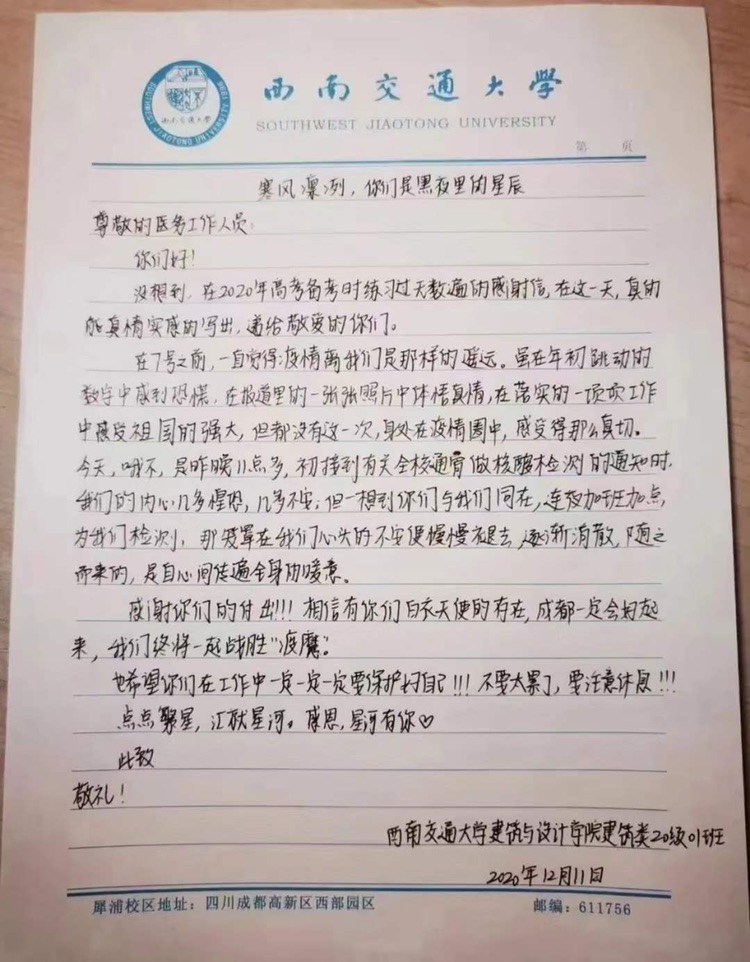 西南交通大學
SOUTHWEST JIAOTONG UNIVERSITY
西南交通大学
SOUTHWEST JIAOTONG UNIVERSITY
第 页
寒风凛冽，你们是黑夜里的星辰
尊敬的医务工作人员：
你们好！
没想到，在2020年高考备考时练习过无数遍的感谢信，在这一天，真的
能真情实感的写出，递给敬爱的你们。
在7号之前，一直觉得疫情离我们是那样的遥远。虽在年初跳动的
数字中感到恐慌，在报道里的一张张照片中体悟真情，在落实的一项项工作
中感受祖国的强大，但都没有这一次，身处在疫情圈中，感受得那么真切。
今天，哦不，是昨晚11点多，初接到有关全校通宵做核酸检测的通知时，
我们的内心几多惶恐，几多不安；但一想到你们与我们同在，连夜加班加点，
为我们检测，那笼罩在我们心头的不安便慢慢褪去，逐渐消散，随之
而来的，是自心间传遍全身的暖意。
感谢你们的付出!!! 相信有你们白衣天使的存在，成都一定会好起
来，我们终将一起战胜“疫魔”。
也希望你们在工作中一定一定一定要保护好自己!!! 不要太累了，要注意休息!!!
点点繁星，汇成星河。感恩，星河有你♡
此致
敬礼！
西南交通大学建筑与设计学院建筑类20级01班
2020年12月11日
犀浦校区地址：四川成都高新区西部园区 邮编：611756